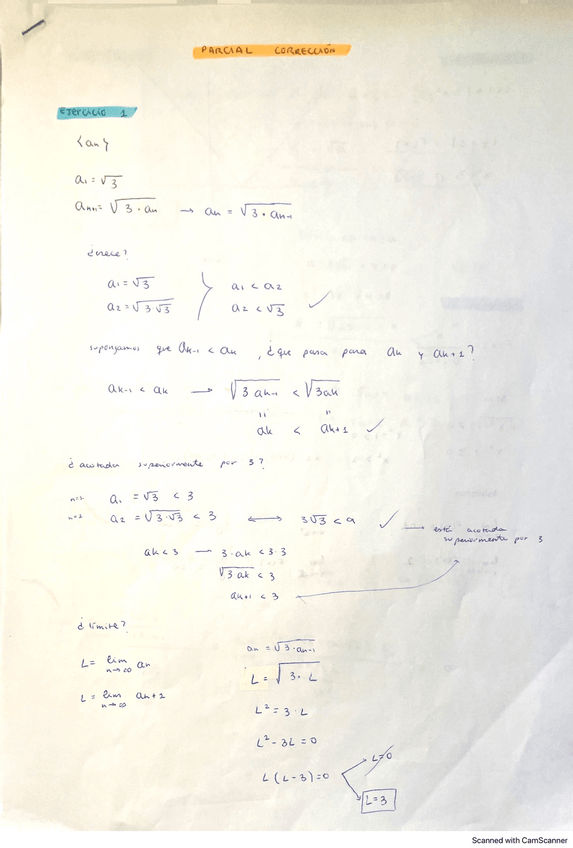 PARCIAL CORRECCIÓN
Ejercicio 1
{an}
a₁ = √3
aₙ₊₁ = √(3·aₙ) → aₙ = √(3·aₙ₋₁)
¿crece?
a₁ = √3 a₁ < a₂
a₂ = √(3√3) a₂ < √3 ✓
supongamos que aₖ₋₁ < aₖ, ¿que pasa para aₖ y aₖ₊₁?
aₖ₋₁ < aₖ → √(3aₖ₋₁) < √(3aₖ)
= =
aₖ < aₖ₊₁ ✓
¿acotada superiormente por 3?
a₁ = √3 < 3
a₂ = √(3·√3) < 3 ↔ 3√3 < 9 ✓ → está acotada
superiormente por 3
aₖ < 3 — 3·aₖ < 3·3
√(3aₖ) < 3
aₖ₊₁ < 3
¿límite?
aₙ = √(3·aₙ₋₁)
L = lim n→∞ aₙ
L = √(3·L)
L = lim n→∞ aₙ₊₁
L² = 3·L
L² - 3L = 0
L=0
L(L-3) = 0
L=3
Scanned with CamScanner